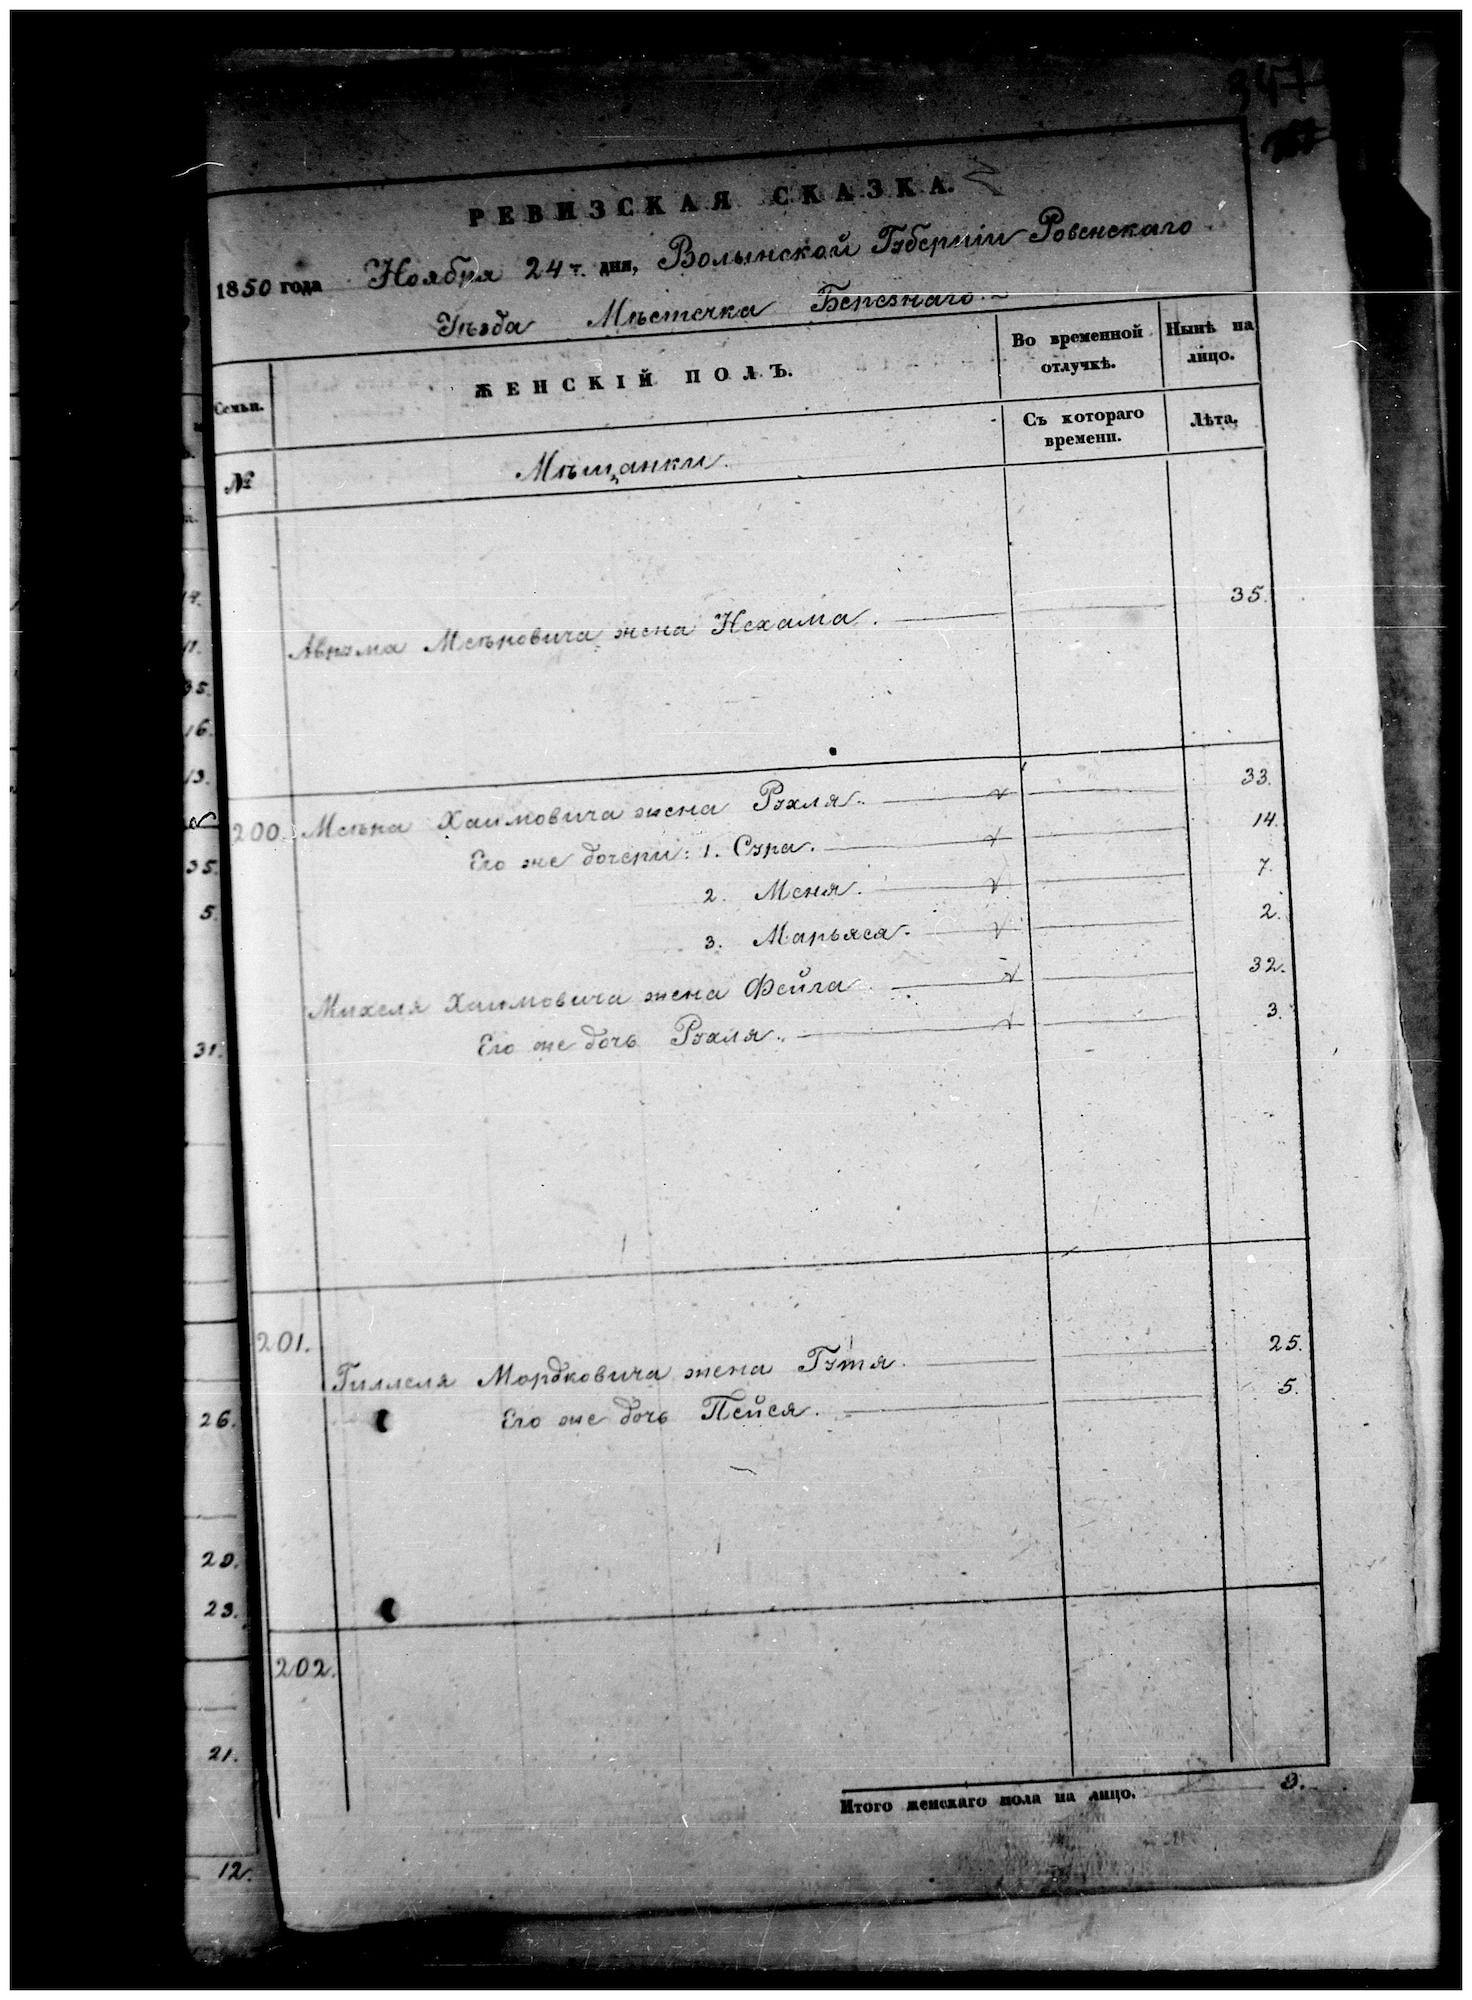 347
РЕВИЗСКАЯ СКАЗКА.
1850 года Ноября 24 г. дня, Волынской Губерніи Ровенскаго
Уѣзда Мѣстечка Березнаго.
Семьи.
ЖЕНСКІЙ ПОЛЪ.
Во временной отлучкѣ.
Нынѣ на лицо.
№
Мѣщанки.
Съ котораго времени.
Лѣта.
Аврума Меѣровича жена Нехама. 35.
200. Меѣра Хаимовича жена Рухля. 33.
Его же дочери: 1. Сура. 14.
2. Меня. 7.
3. Марьяся. 2.
Михеля Хаимовича жена Фейга 32.
Его же дочь Рухля. 3.
201.
Гиллеля Мордковича жена Гутя. 25.
Его же дочь Пейся. 5.
202.
Итого женскаго пола на лицо. 9.
11.
35.
16.
13.
35.
5.
31.
26.
20.
23.
21.
12.